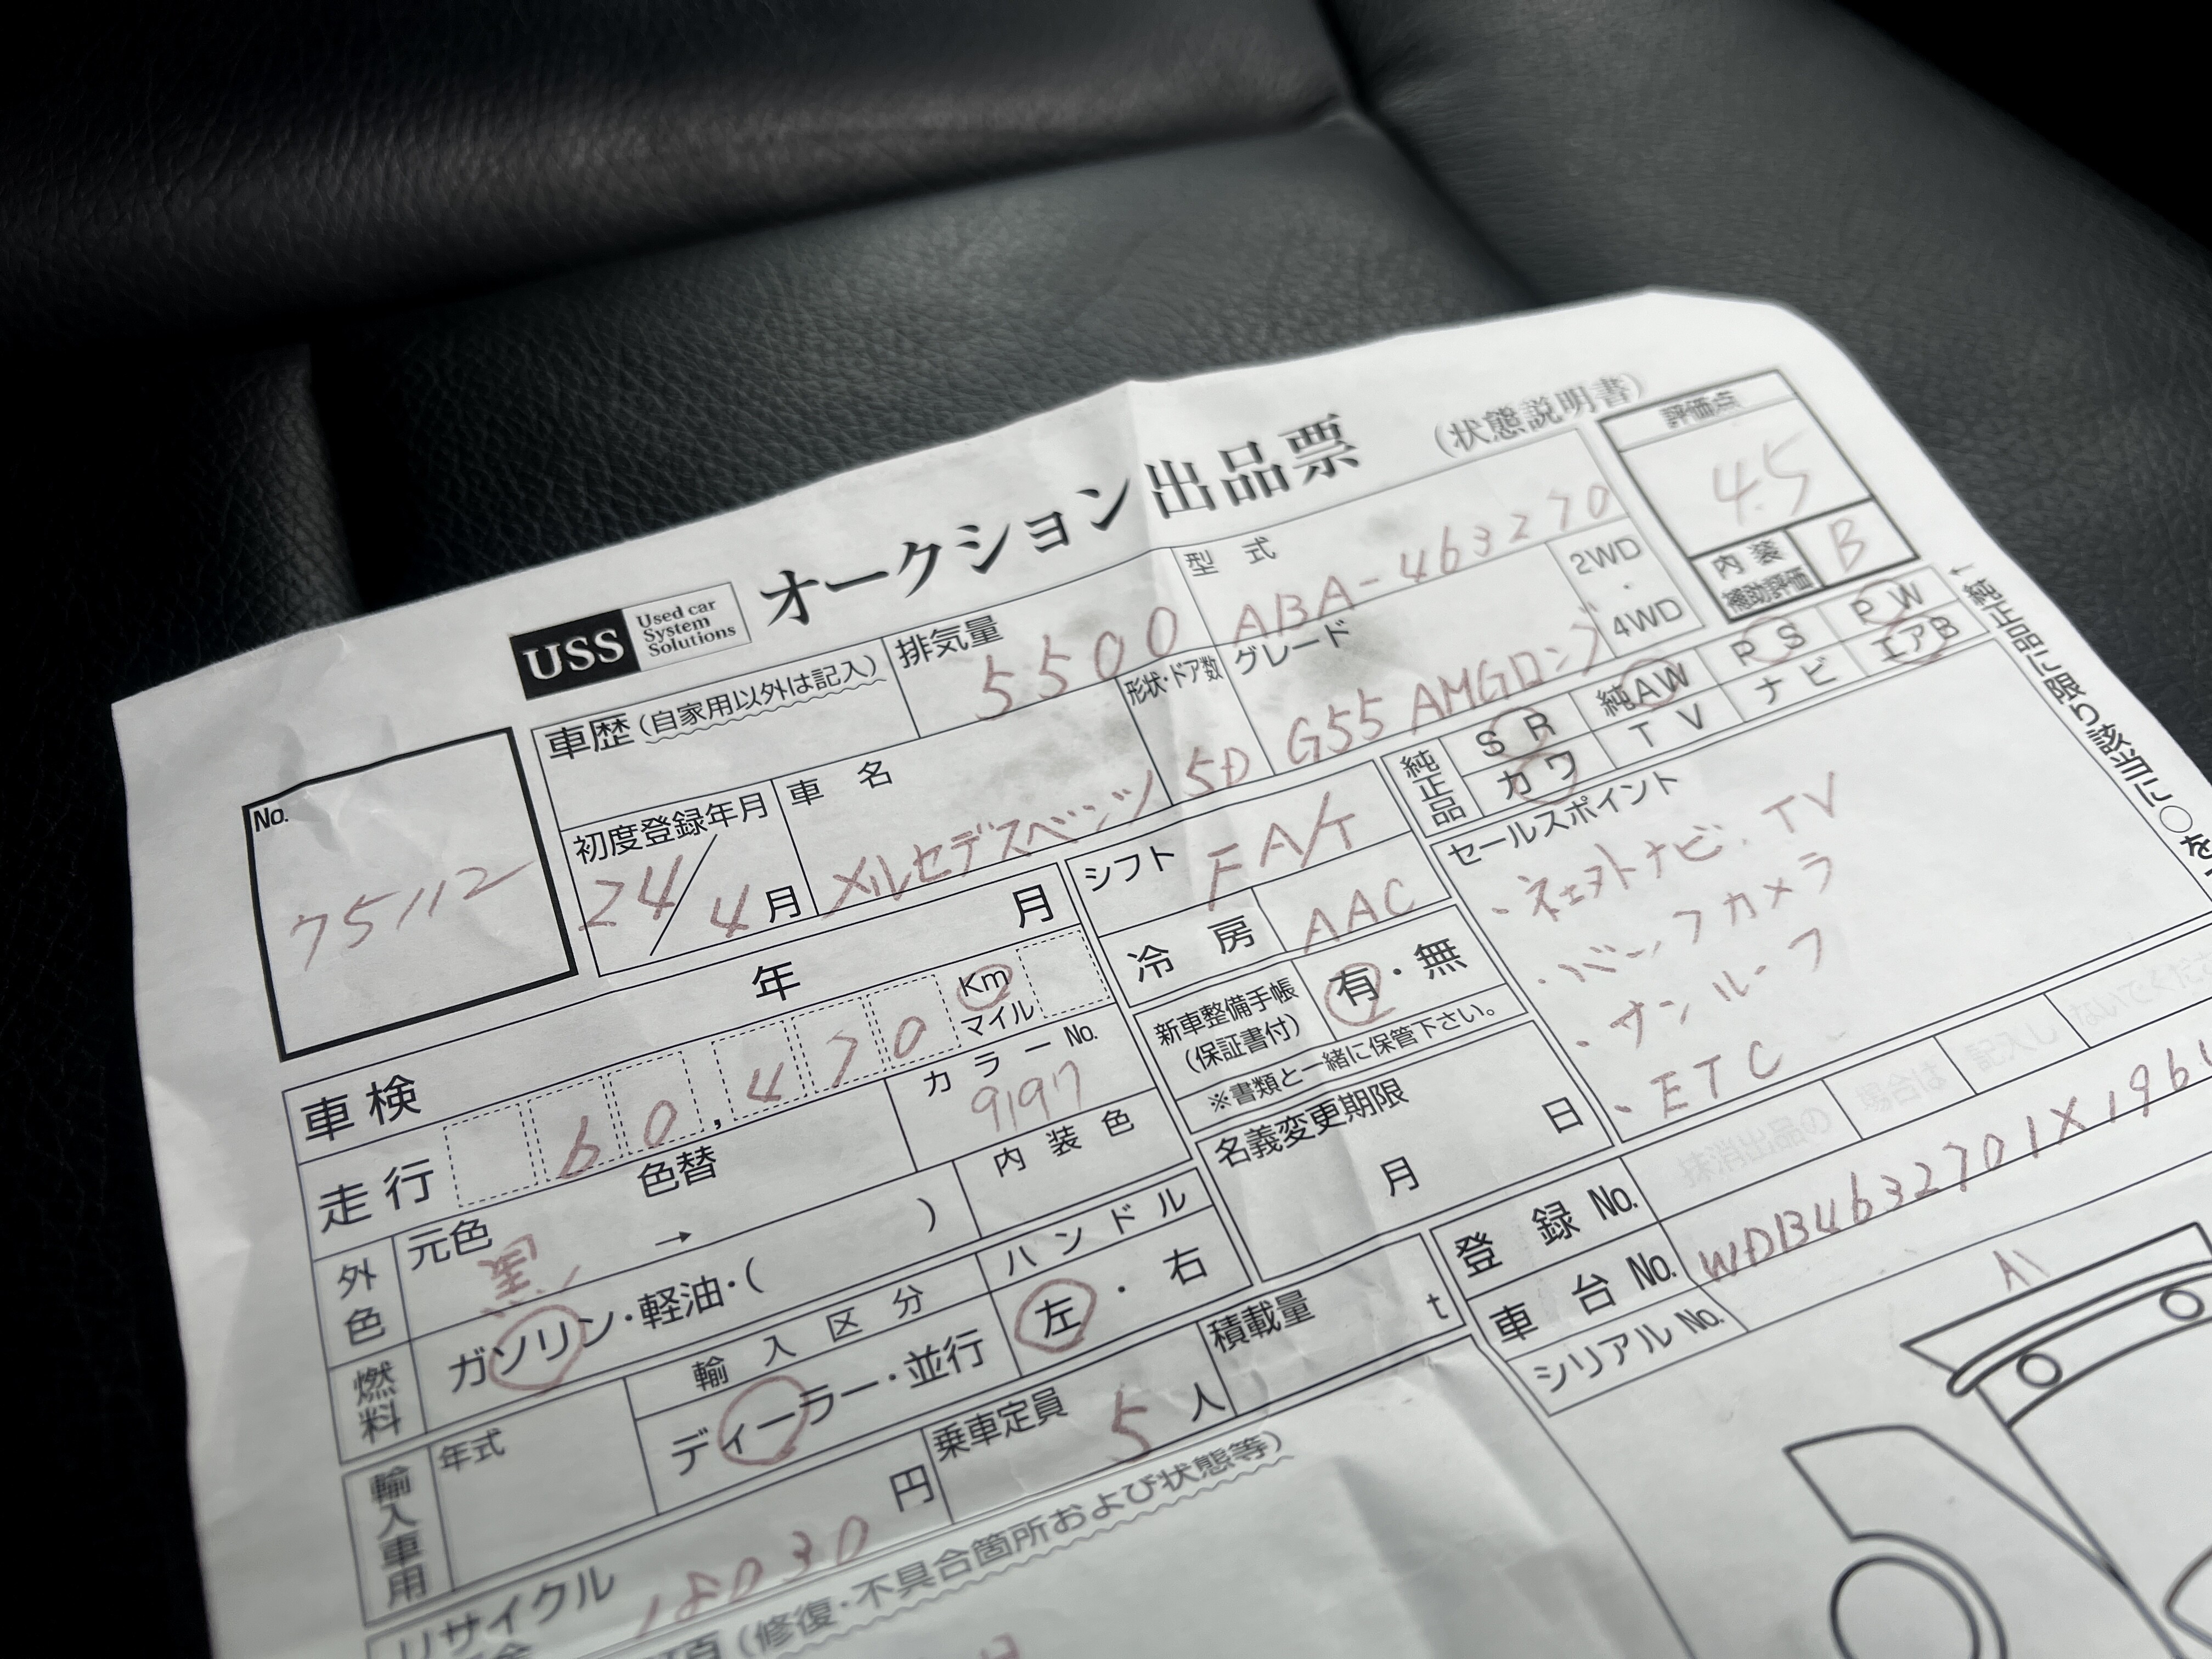 USS Used car System Solutions オークション出品票 (状態説明書)
評価点
4.5
内装 補助評価 B
No.
75112
車歴 (自家用以外は記入)
排気量
5500
型式
ABA-463270
2WD・4WD
初度登録年月
24/4月
車名
メルセデスベンツ
形状・ドア数
5D
グレード
G55 AMGロング
純正品
SR 純AW PS PW
カワ TV ナビ エアB
↑純正品に限り該当に○を
車検 年 月
シフト
FA/T
冷房
AAC
セールスポイント
・ネェヌトナビ.TV
・バックカメラ
・サンルーフ
・ETC
走行 60,470 Km マイル
新車整備手帳 (保証書付) 有・無
※書類と一緒に保管下さい。
外色
元色 黒
色替
→
カラーNo.
9197
内装色
名義変更期限
月 日
燃料
ガソリン・軽油・( )
ハンドル
左・右
登録No.
抹消出品の 場合は 記入し ないでくだ
車台No.
WDB4632701X196
シリアルNo.
輸入車用
年式
輸入区分
ディーラー・並行
乗車定員
5人
積載量
t
A1
リサイクル
18030円
(修復・不具合箇所および状態等)